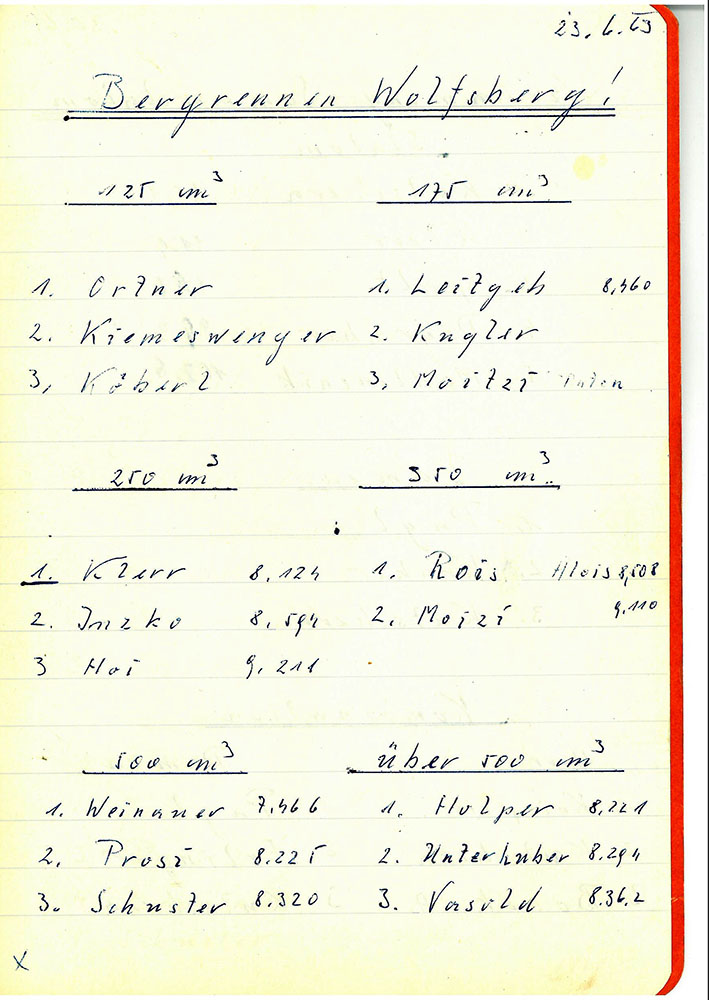 23. 6. 63
Bergrennen Wolfsberg!
125 cm³ 175 cm³
1. Ortner 1. Leitgeb 8,460
2. Kiemeswenger 2. Kugler
3, Köberl 3, Moitzi
250 cm³ 350 cm³
1. Klerr 8.124 1. Rois Alois 8,508
2. Inzko 8.594 2. Moizi 9.110
3 Hoi 9.211
500 cm³ über 500 cm³
1. Weinauer 7.466 1. Holper 8.221
2. Prosi 8.225 2. Unterhuber 8.294
3. Schuster 8.320 3. Vasold 8.36.2
x